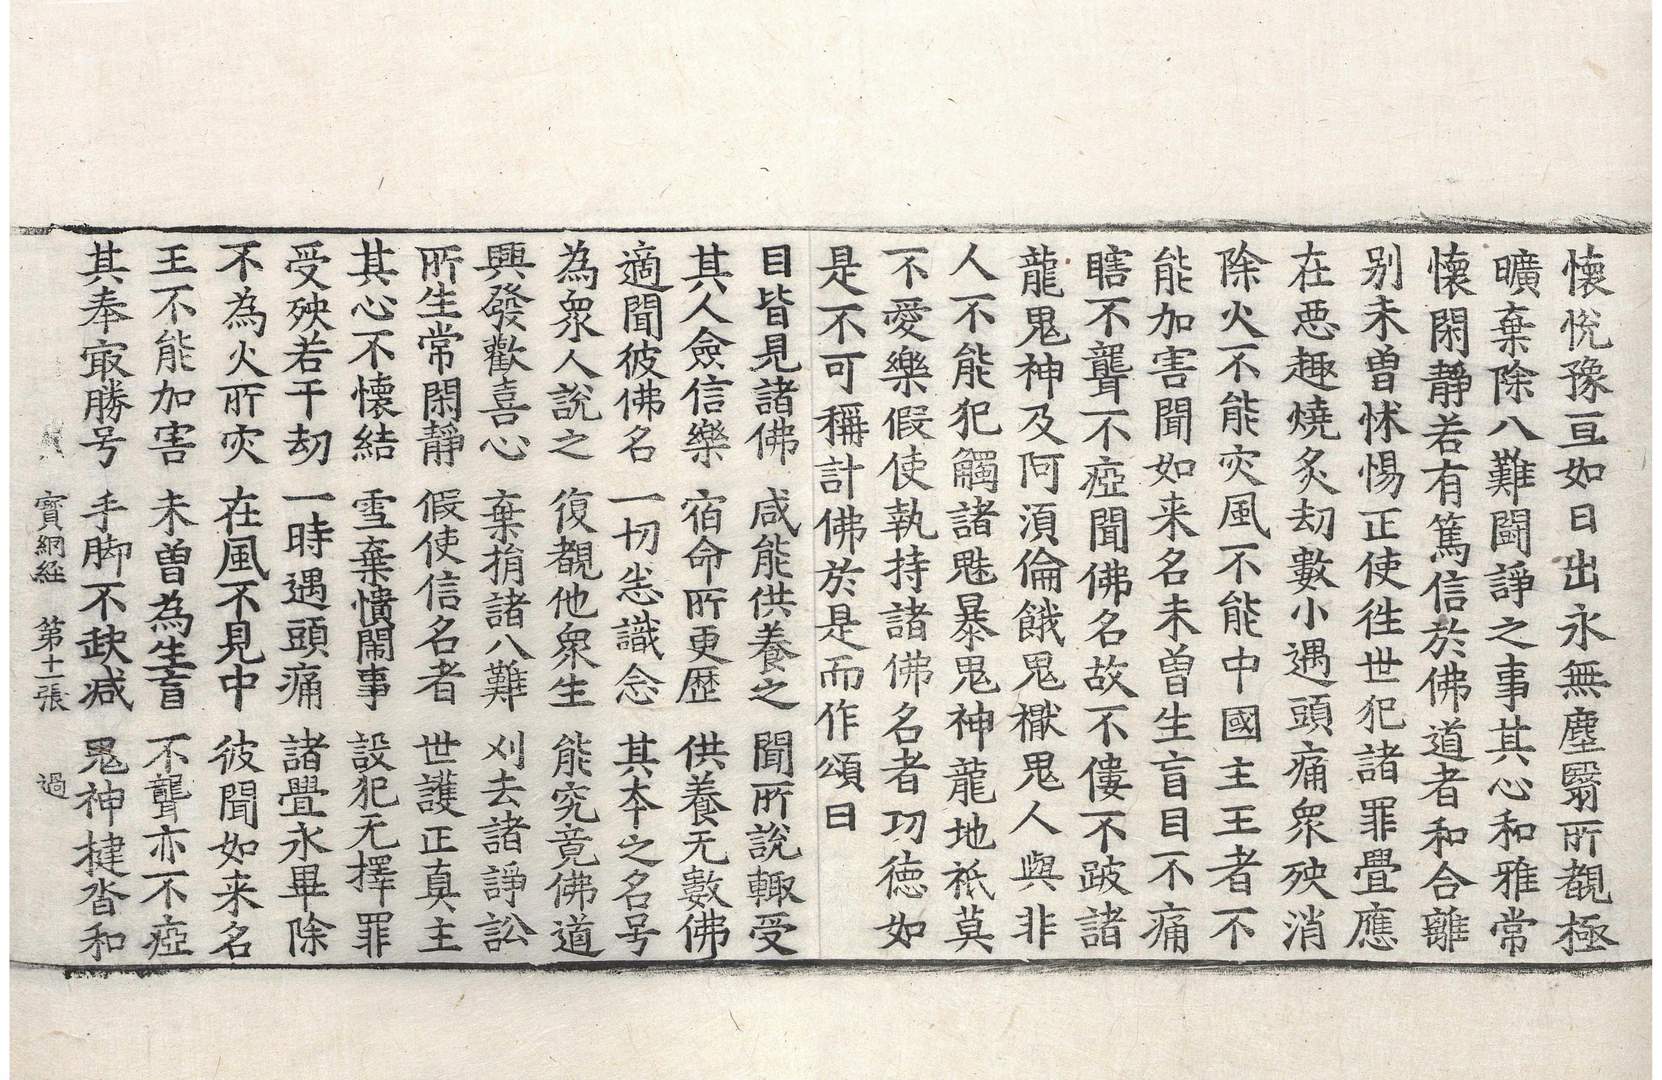 懷悅豫亘如日出永無塵翳所覩極
曠棄除八難鬪諍之事其心和雅常
懷閑靜若有篤信於佛道者和合離
別未曽怵惕正使徃世犯諸罪亹應
在惡趣燒炙劫數小遇頭痛衆殃消
除火不能灾風不能中國主王者不
能加害聞如来名未曽生盲目不痛
瞎不聾不瘂聞佛名故不僂不跛諸
龍鬼神及阿湏倫餓鬼檓鬼人與非
人不能犯觸諸魅暴鬼神龍地祇莫
不愛樂假使執持諸佛名者功德如
是不可稱計佛於是而作頌曰
目皆見諸佛 咸能供養之 聞所說輙受
其人僉信樂 宿命所更歷 供養无數佛
適聞彼佛名 一切恙識念 其夲之名号
為衆人說之 復覩他衆生 能究竟佛道
興發歡喜心 棄捐諸八難 刈去諸諍訟
所生常閑靜 假使信名者 世護正真主
其心不懷結 雪棄憒閙事 設犯无擇罪
受殃若干劫 一時遇頭痛 諸亹永畢除
不為火所灾 在風不見中 彼聞如来名
王不能加害 未曽為生盲 不聾亦不瘂
其奉㝡勝号 手脚不缺减 鬼神揵沓和
寶網経 第十一張 過